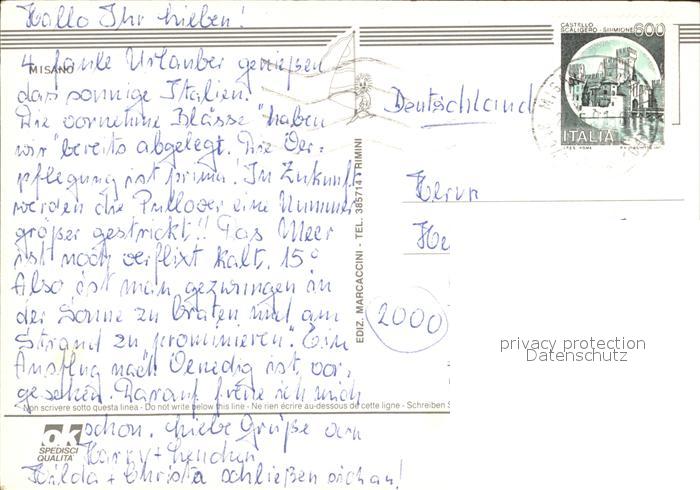 Hallo Ihr Lieben!
MISANO
4 faule Urlauber genießen
das sonnige Italien.
Die vornehme Blässe" haben
wir bereits abgelegt. Die Ver=
pflegung ist prima! In Zukunft
werden die Pullover eine Nummer
größer gestrickt!! Das Meer
ist noch verflixt kalt. 15°
Also ist man gezwungen in
der Sonne zu braten und am
Strand zu prominieren". Ein
Ausflug nach Venedig ist vor-
gesehen. Darauf freue ich mich
Non scrivere sotto questa linea - Do not write below this line - Ne rien écrire au-dessous de cette ligne - Schreiben S
schon. Liebe Grüße von
Harry + Lenchen
Hilda + Christa schließen sich an!
ok
SPEDISCI
QUALITA'
EDIZ. MARCACCINI - TEL. 385714 - RIMINI
CASTELLO
SCALIGERO - SIRMIONE
600
ITALIA
I.P.Z.S. ROMA
Deutschland
Herrn
He
2000
privacy protection
Datenschutz